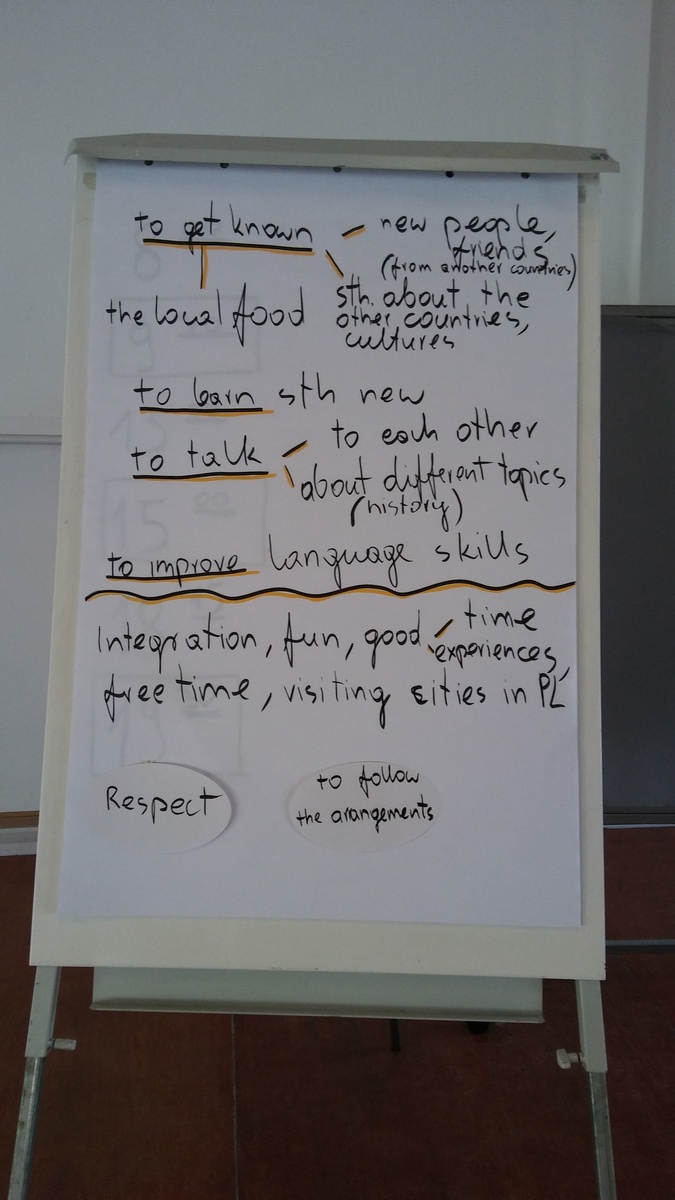 to get known - new people,
friends
(from another countries)
the local food
sth. about the
other countries,
cultures
to learn sth new
to talk
to each other
about different topics
(history)
to improve language skills
Integration, fun, good time
experiences,
free time, visiting cities in PL
Respect
to follow
the arangements